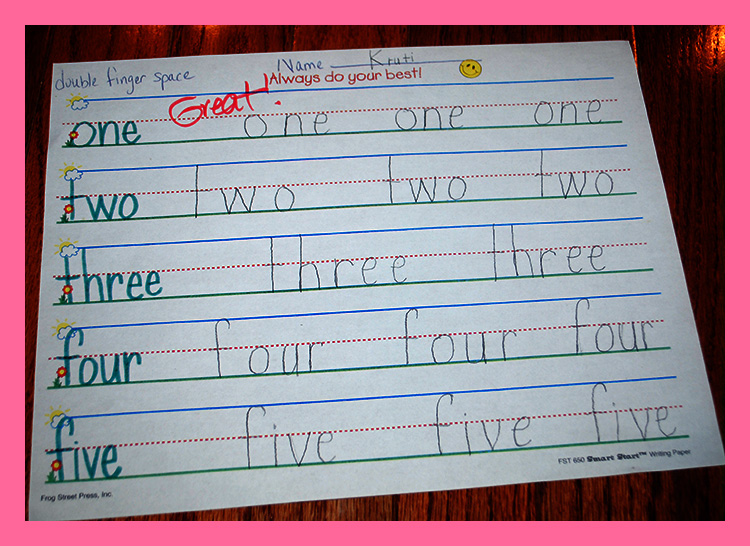 Name Kruti
double finger space
Always do your best!
Great!
one one one one
two two two two
three three three
four four four four
five five five five
FST 650 Smart Start™ Writing Paper
Frog Street Press, Inc.